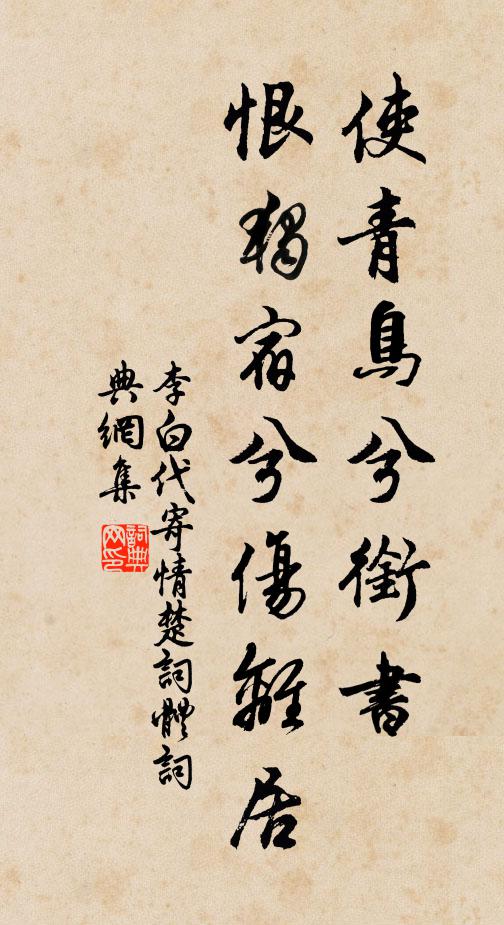 使青鳥兮銜書
恨獨宿兮傷離居
李白代寄情楚詞體詞
典網集
詞典
网印